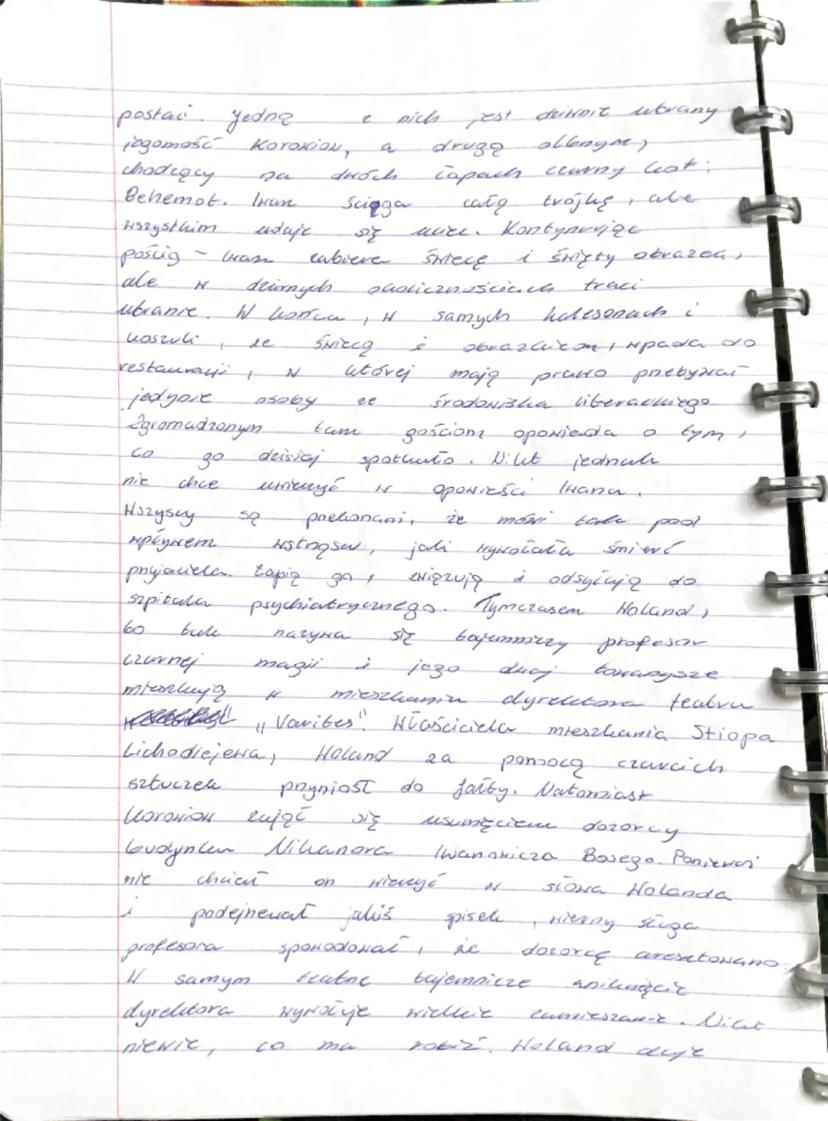 postać. Jedną z nich jest dziwnie ubrany
jegomość Korowiow, a drugą olbrzym,
chodzący na dwóch łapach czarny kot:
Behemot. Iwan ściga całą trójkę, ale
wszystkim udaje się uciec. Kontynuując
pościg - Iwan zabiera świecę i święty obrazek,
ale w dziwnych okolicznościach traci
ubranie. W końcu, w samych kalesonach i
koszuli, ze świecą i obrazkiem, wpada do
restauracji, w której mają prawo przebywać
jedynie osoby ze środowiska literackiego.
Zgromadzonym tam gościom opowiada o tym,
co go dzisiaj spotkało. Nikt jednak
nie chce uwierzyć w opowieści Iwana.
Wszyscy są przekonani, że mówi tak pod
wpływem wstrząsu, jaki wywołała śmierć
przyjaciela. Łapią go, związują i odsyłają do
szpitala psychiatrycznego. Tymczasem Woland,
bo tak nazywa się tajemniczy profesor
czarnej magii i jego dwaj towarzysze
mieszkają w mieszkaniu dyrektora teatru
"Varites". Właściciela mieszkania Stiopa
Lichodiejewa, Woland za pomocą czarcich
sztuczek przyniósł do Jałty. Natomiast
Korowiow zajął się usunięciem dozorcy
budynku Nikanora Iwanowicza Bosego. Ponieważ
nie chciał on wierzyć w słowa Wolanda
i podejrzewał jakiś spisek, wierny sługa
profesora spowodował, że dozorcę aresztowano.
W samym teatrze tajemnicze zniknięcie
dyrektora wywołuje wielkie zamieszanie. Nikt
niewie, co ma robić. Woland daje